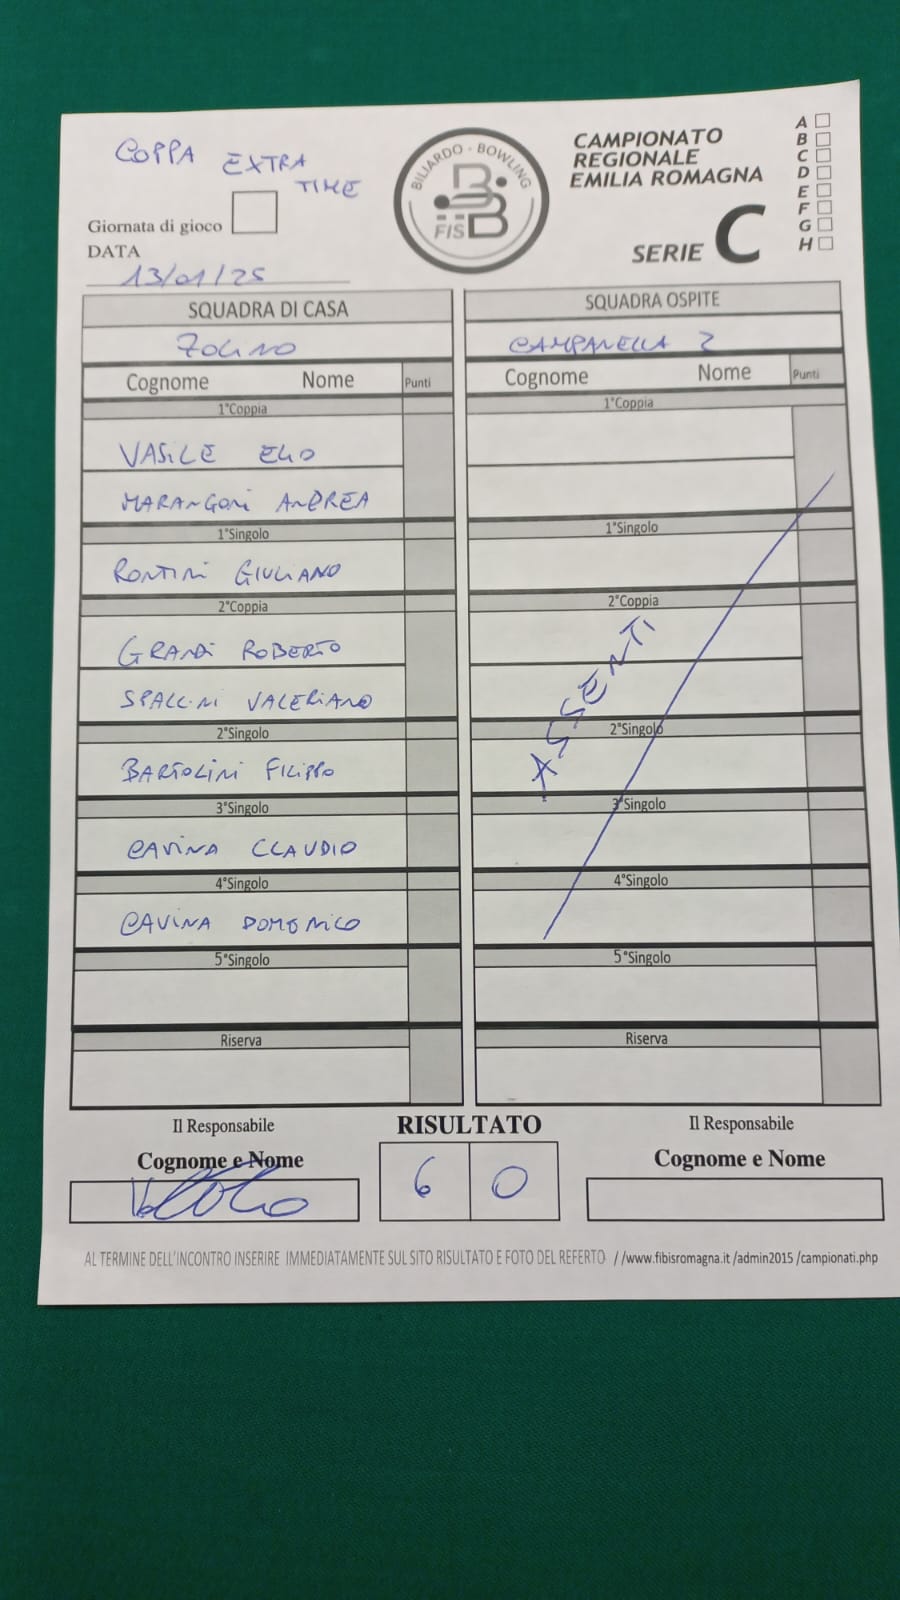 COPPA EXTRA TIME
BILIARDO - BOWLING
FISBB
CAMPIONATO
REGIONALE
EMILIA ROMAGNA
SERIE C
A
B
C
D
E
F
G
H
Giornata di gioco
DATA
13/01/25
SQUADRA DI CASA
ZOLINO
Cognome Nome Punti
1°Coppia
VASILE ELIO
MARANGONI ANDREA
1°Singolo
RONTINI GIULIANO
2°Coppia
GRANDI ROBERTO
SPALLINI VALERIANO
2°Singolo
BARTOLINI FILIPPO
3°Singolo
CAVINA CLAUDIO
4°Singolo
CAVINA DOMENICO
5°Singolo
Riserva
SQUADRA OSPITE
CAMPANELLA
Cognome Nome Punti
1°Coppia
1°Singolo
2°Coppia
ASSENTI
2°Singolo
3°Singolo
4°Singolo
5°Singolo
Riserva
Il Responsabile
Cognome e Nome
RISULTATO
6 0
Il Responsabile
Cognome e Nome
AL TERMINE DELL'INCONTRO INSERIRE IMMEDIATAMENTE SUL SITO RISULTATO E FOTO DEL REFERTO //www.fibisromagna.it /admin2015 /campionati.php